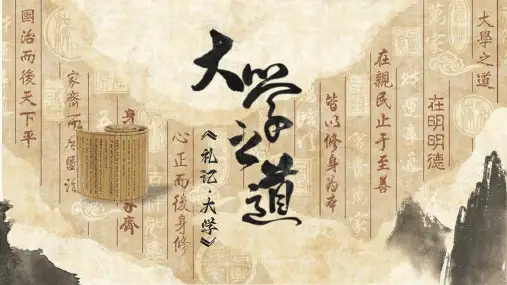 大學之道
在明明德
在親民止于至善
皆以修身為本
大学之道
《礼记·大学》
心正而後身修
身
齊
家齊而后國治
國治而後天下平